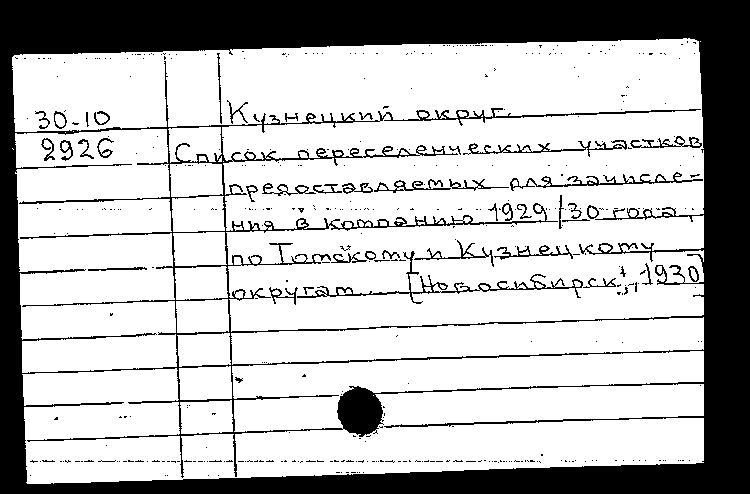 30-10
2926
Кузнецкий округ.
Список переселенческих участков
предоставляемых для зачисле-
ния в компанию 1929/30 года,
по Томскому и Кузнецкому
округам. [Новосибирск, 1930]